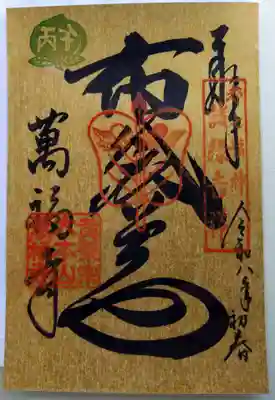 奉拝
令和八年初春
布袋尊
丙午
萬福寺